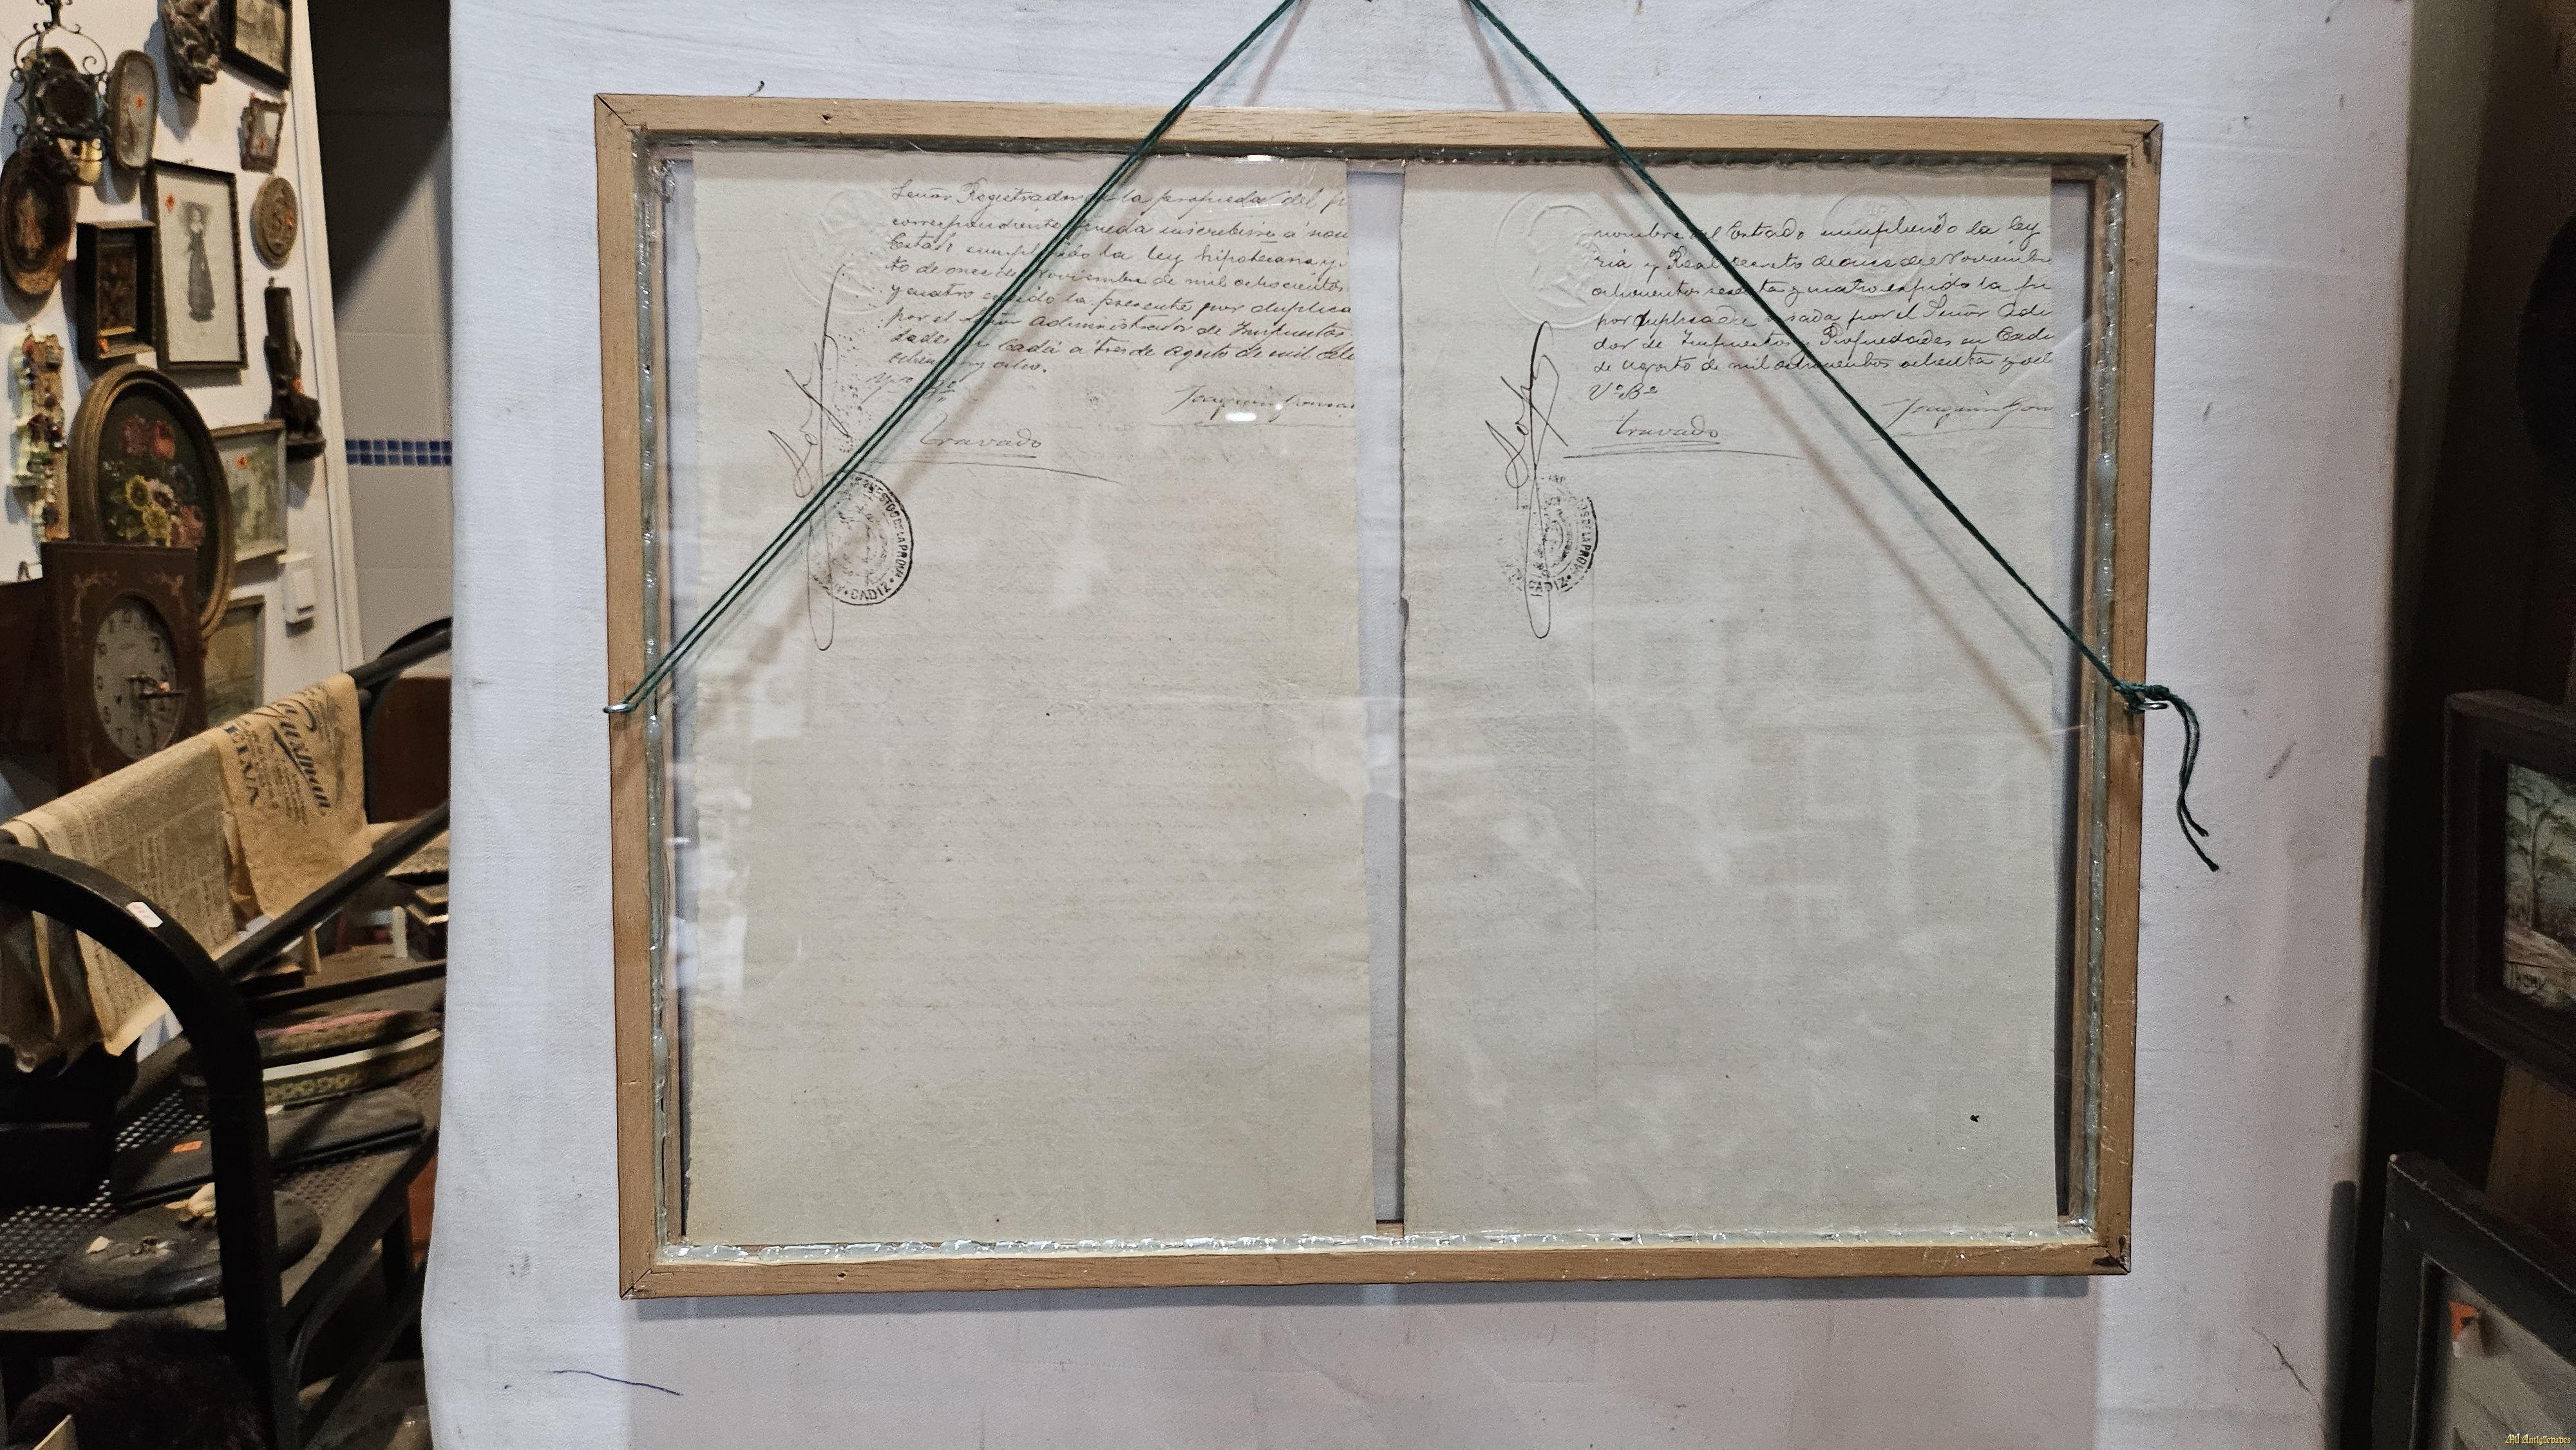 Señor Registrador la propieda del
correspondiente pueda inscribirse á nom
Estado cumpliendo la ley hipotecaria y
to de once de Noviembre de mil ochocientos
y cuatro expido la presente por duplica
por el Señor Administrador de Impuestos
dades en Cadiz a tres de Agosto de mil ocho
ochenta y ocho.
Vº Bº
Joaquin
Travado
CADIZ
nombre del Estado cumpliendo la ley
ria y Real decreto de once de Noviembre
ochocientos sesenta y cuatro expido la pr
por duplicado visada por el Señor Admi
dor de Impuestos y Propiedades en Cadi
de agosto de mil ochocientos ochenta y och
Vº Bº
Joaquin
Travado
CADIZ
Guzman
Mil Antigüedades